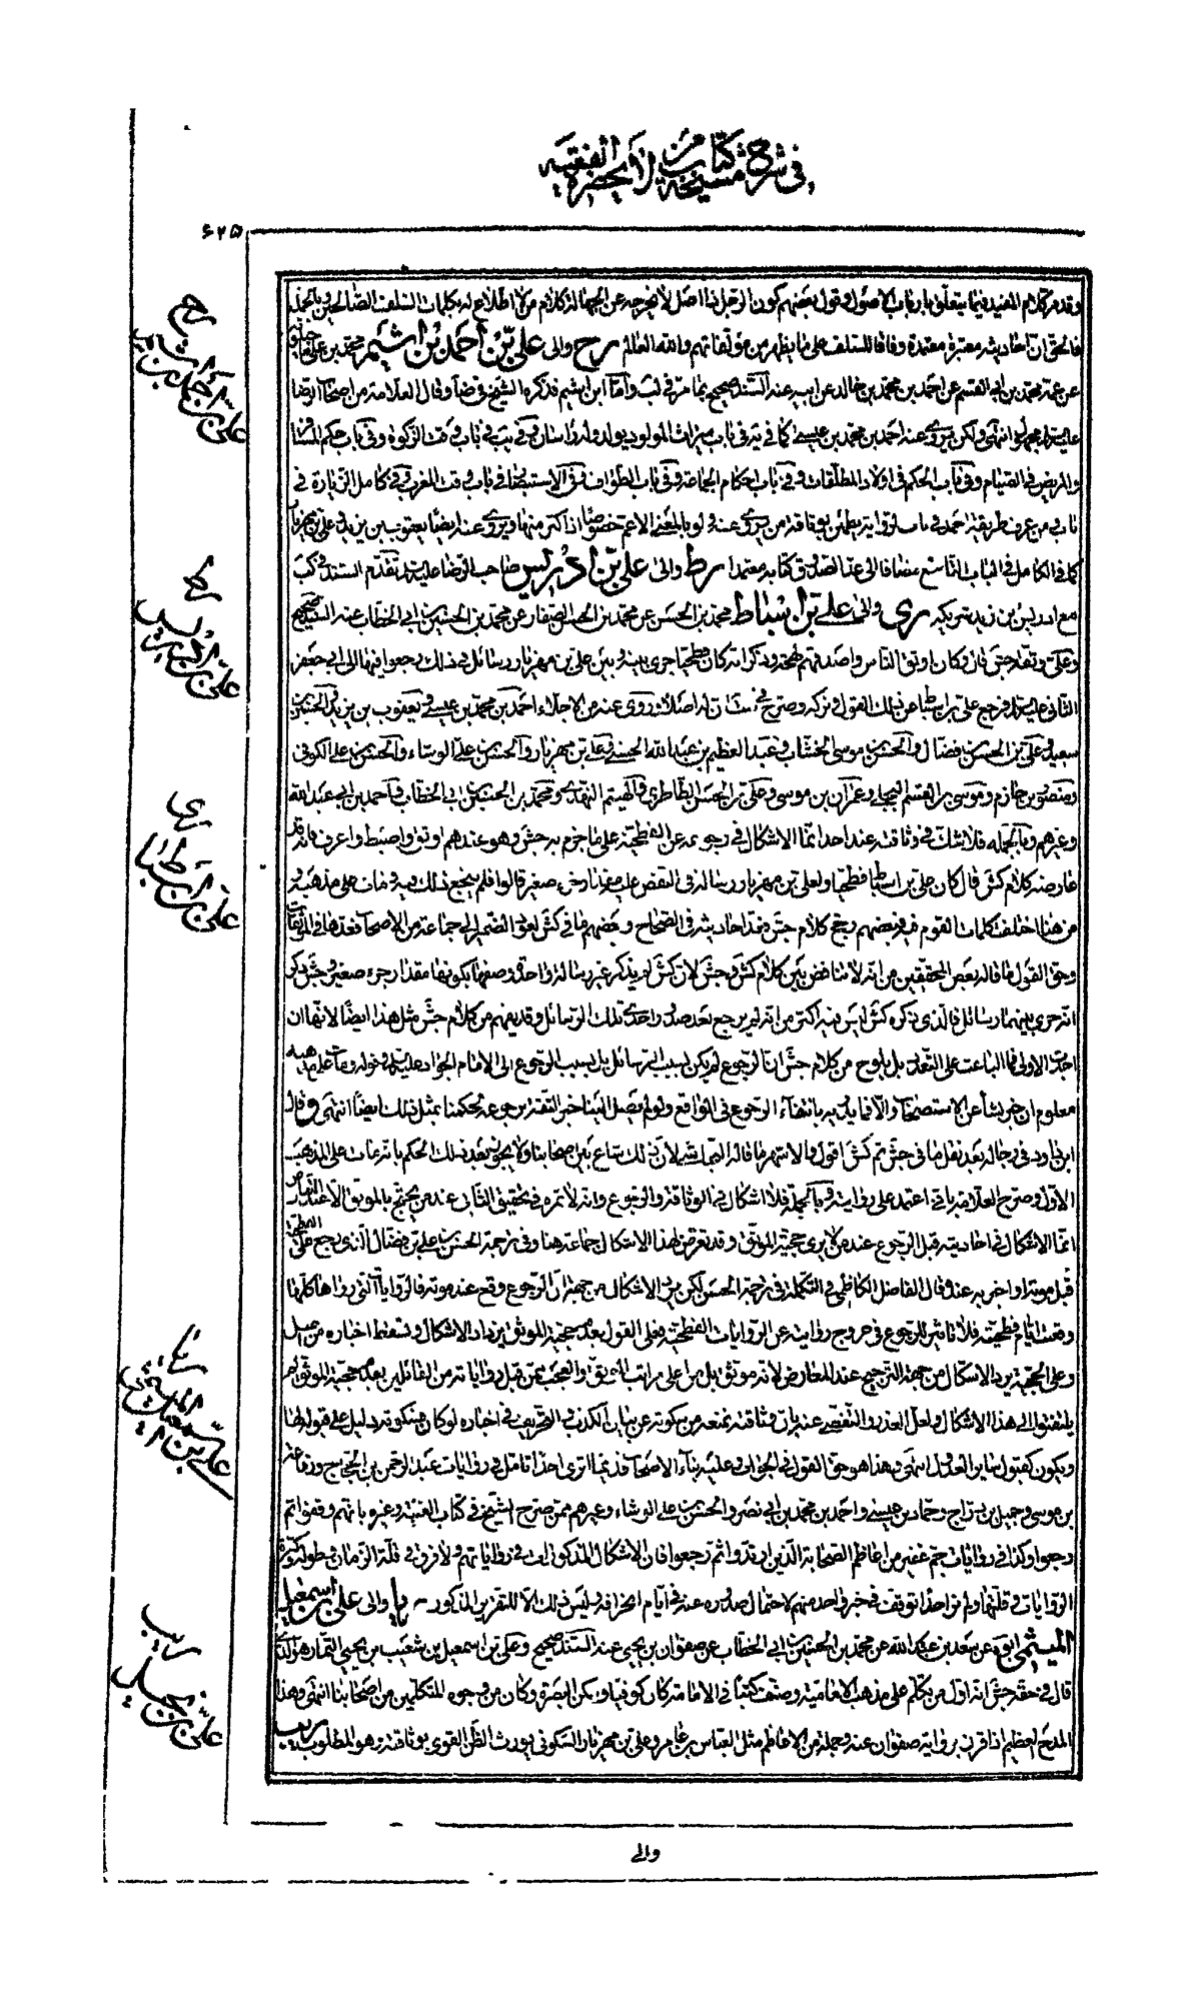 في شرح مشيخة كتاب من لا يحضره الفقيه
٦٢٥
وقد مر كلام المفيد فيما يتعلق بارباب الاصول وقول بعضهم كون الرجل ذا اصل لا يخرجه عن الجهالة كلام من لا اطلاع له بكلمات السلف الصالحين وبالجملة
فالحق ان احاديثه معتبرة معتمدة وفاقا للسلف على ما يظهر من مؤلفاتهم والله العالم رح والى علي بن احمد بن اشيم محمد بن علي ماجيلويه
عن عمه محمد بن ابي القسم عن احمد بن محمد بن خالد عن ابيه عنه السند صحيح بما مر في لب واما ابن اشيم فذكره الشيخ في ضا وقال العلامة من اصحاب الرضا
عليه السلام مجهول انتهى ولكن يروي عنه احمد بن محمد بن عيسى كما في يه في باب ميراث المولود يولد وله راسان وفي يب في باب وقت الزكوة وفي باب حكم المسافر
والمريض في الصيام وفي باب الحكم في اولاد المطلقات وفي باب احكام الجماعة وفي باب الطواف وفي الاستبصار في باب وقت المغرب وفي كامل الزيارة في
باب من عرف طريقة احمد في باب الرواية يطمئن بوثاقة من يروي عنه ولو بالمعنى الاعم خصوصا اذا اكثر منها ويروي عنه ايضا يعقوب بن يزيد وعلي بن مهزيار
كما في الكامل في الباب التاسع مضافا الى عد الصدوق كتابه معتمدا رط والى علي بن ادريس صاحب الرضا عليه السلام تقدم السند في كب
مع ادريس بن زيد شريكه ري والى علي بن اسباط محمد بن الحسن عن محمد بن الحسن الصفار عن محمد بن الحسين بن ابي الخطاب عنه السند صحيح
وعلي وثقه جش قال وكان اوثق الناس واصدقهم لهجة وذكر انه كان فطحيا جرى بينه وبين علي بن مهزيار رسائل في ذلك رجعوا فيها الى ابي جعفر
الثاني عليه السلام فرجع علي بن اسباط عن ذلك القول وتركه وصرح في ست ان له اصلا وروى عنه من الاجلاء احمد بن محمد بن عيسى ويعقوب بن يزيد والحسين بن
سعيد وعلي بن الحسن بن فضال والحسن بن موسى الخشاب وعبد العظيم بن عبد الله الحسني وعلي بن مهزيار والحسن بن علي الوشاء والحسن بن علي الكوفي
ومنصور بن حازم وموسى بن القسم البجلي وعمران بن موسى وعلي بن الحسن الطاطري والهيثم النهدي ومحمد بن الحسين بن ابي الخطاب واحمد بن ابي عبد الله
وغيرهم وبالجملة فلا شك في وثاقته عند احد انما الاشكال في رجوعه عن الفطحية على ما جزم به جش وهو عندهم اوثق واضبط واعرف ما قد
عارضه كلام كش قال كان علي بن اسباط فطحيا ولعلي بن مهزيار رسالة في النقض عليه مقدار جزء صغير قالوا فلم ينجع ذلك فيه ومات على مذهبه و
من هنا اختلفت كلمات القوم فيه فبعضهم رجح كلام جش فعد احاديثه في الصحاح وبعضهم ما في كش لعود الضمير الى جماعة من الاصحاب فعدها في الموثقات
وحق القول ما قاله بعض المحققين من انه لا تناقض بين كلام كش وجش لان كش لم يذكر غير رسالة واحدة وصفها بكونها مقدار جزء صغير وجش ذكر
انه جرى بينهما رسائل فالذي ذكره كش ليس فيه اكثر من انه لم يرجع بعد صدور احدى تلك الرسائل وقد يفهم من كلام جش مثل هذا ايضا لا انها ان
اجدت الاولى فما الباعث على التعدد بل يلوح من كلام جش ان الرجوع لم يكن بسبب الرسائل بل بسبب الرجوع الى الامام الجواد عليه السلام وقوله ومات على مذهبه
معلوم ان خبر ينشأ عن الاستصحاب والا فما يدريه بانتفاء الرجوع في الواقع ولو لم يصل الينا خبر الثقة برجوعه لحكمنا بمثل ذلك ايضا انتهى وقال
ابن داود في رجاله بعد نقل ما في جش ثم كش اقول والاشهر ما قاله النجاشي لان ذلك شاع بين اصحابنا ولا يجوز بعد ذلك الحكم بانه مات على المذهب
الاول وصرح العلامة باني اعتمد على روايته وبالجملة فلا اشكال في الوثاقة والرجوع وانه لا ثمرة في تحقيق الثاني عند من يحتج بالموثق الا عند التعارض
انما الاشكال في احاديثه قبل الرجوع عند من لا يرى حجية الموثق وقد تعرض لهذا الاشكال جماعة هنا وفي ترجمة الحسن بن علي بن فضال الذي رجع عن الفطحية
قبل موته او اخبر به عنده وقال الفاضل الكاظمي في التكملة في ترجمة الحسن لكن يرد الاشكال من جهة ان الرجوع وقع عند موته فالروايات التي رواها كلها
وقعت ايام فطحيته فلا تاثير للرجوع في خروج رواياته عن الروايات الفطحية فعلى القول بعدم حجية الموثق يزداد الاشكال وتسقط اخباره من اصل
وعلى الحجية يرد الاشكال من جهة الترجيح عند المعارض لانه موثق بل من اعلى مراتب الموثق والعجب ممن قبل رواياته من القائلين بعدم حجية الموثق لم
يلتفتوا الى هذا الاشكال ولعل العذر والتفصي عنه بان وثاقته تمنعه من سكوته عن بيان الكذب والتحريف في اخباره لو كان فسكوته دليل على قبولها
ويكون كقبول ساير العدول انتهى وهذا هو حق القول في الجواب وعليه بناء الاصحاب قديما الترى احدا تامل في روايات عبد الرحمن بن الحجاج ورفاعة
بن موسى وجميل بن دراج وحماد بن عيسى واحمد بن محمد بن ابي نصر والحسن بن علي الوشاء وغيرهم ممن صرح الشيخ في كتاب الغيبة وغيره بانهم وقفوا ثم
رجعوا وكذا في روايات جم غفير من اعاظم الصحابة الذين ارتدوا ثم رجعوا فان الاشكال المذكور ات في رواياتهم ولا فرق في قلة الزمان وطوله وكثرة
الروايات وقلتها ولم نر احدا توقف في خبر واحد منهم لاحتمال صدوره عنه في ايام انحرافه وليس ذلك الا للتقرير المذكور ريا والى علي بن اسمعيل
الميثمي ابوه عن سعد بن عبد الله عن محمد بن الحسين بن ابي الخطاب عن صفوان بن يحيى عنه السند صحيح وعلي بن اسمعيل بن شعيب بن ميثم بن يحيى التمار هو الذي
قال في حقه جش انه اول من تكلم على مذهب الامامية وصنف كتبا في الامامة كان كوفيا وسكن البصرة وكان من وجوه المتكلمين من اصحابنا انتهى وهذا
المدح العظيم اذا قرن برواية صفوان عنه وجملة من الاعاظم مثل العباس بن عامر وعلي بن مهزيار والسكوني يورث الظن القوي بوثاقته وهو المطلوب ريب
رح
علي بن احمد بن اشيم
رط
علي بن ادريس
ري
علي بن اسباط
ريا
علي بن اسمعيل الميثمي
ريب
علي بن بجيل
والى